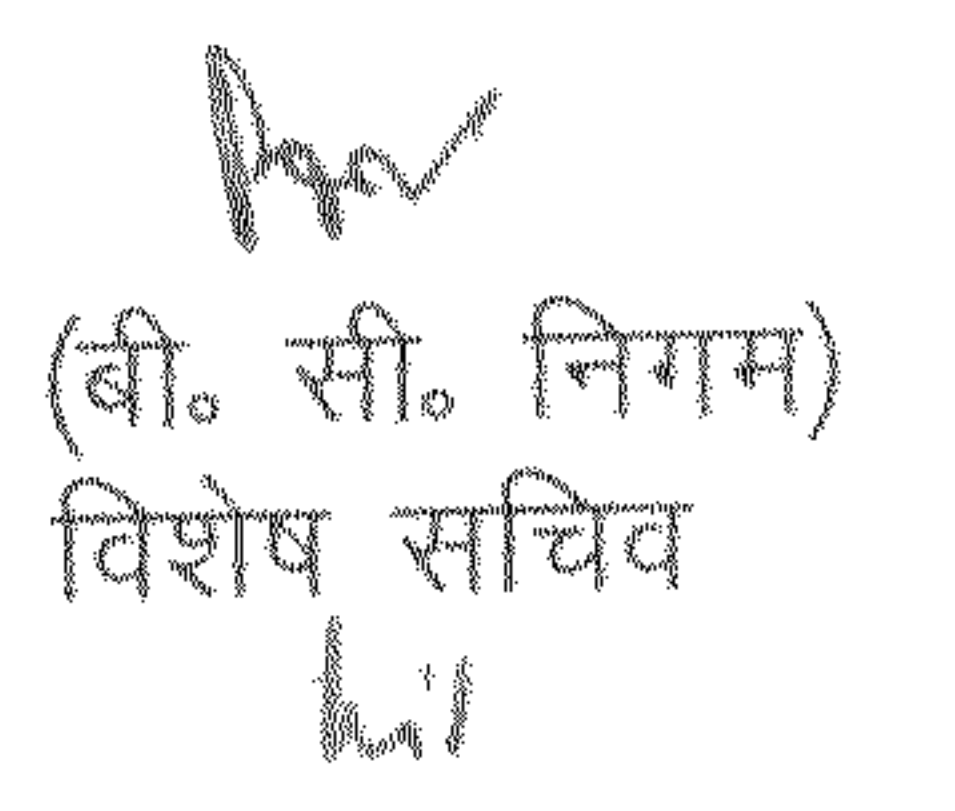 (बी० सी० निगम)
विशेष सचिव